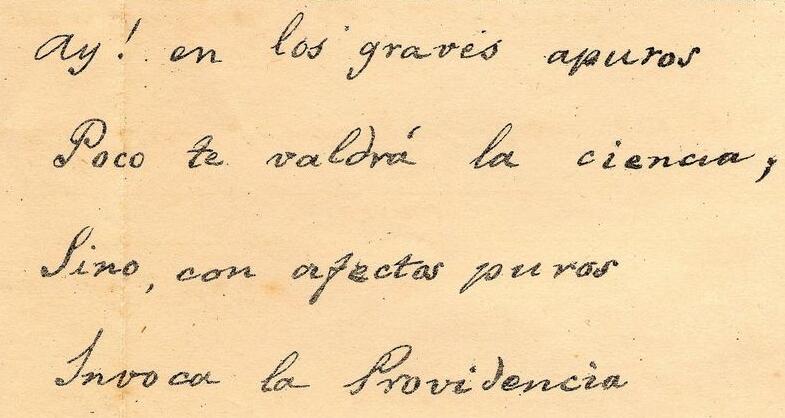 Ay! en los graves apuros
Poco te valdrá la ciencia,
Sino, con afectos puros
Invoca la Providencia